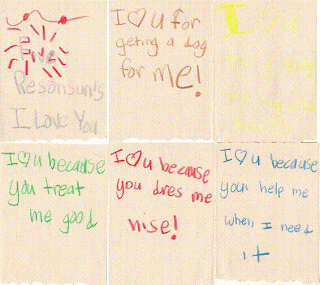 Five
Resonson's
I Love You
I♡u for
geting a dog
for me!
I ♡ u
I♡u because
you treat
me good
I♡u because
you dres me
nise!
I♡u because
you help me
when I need
it